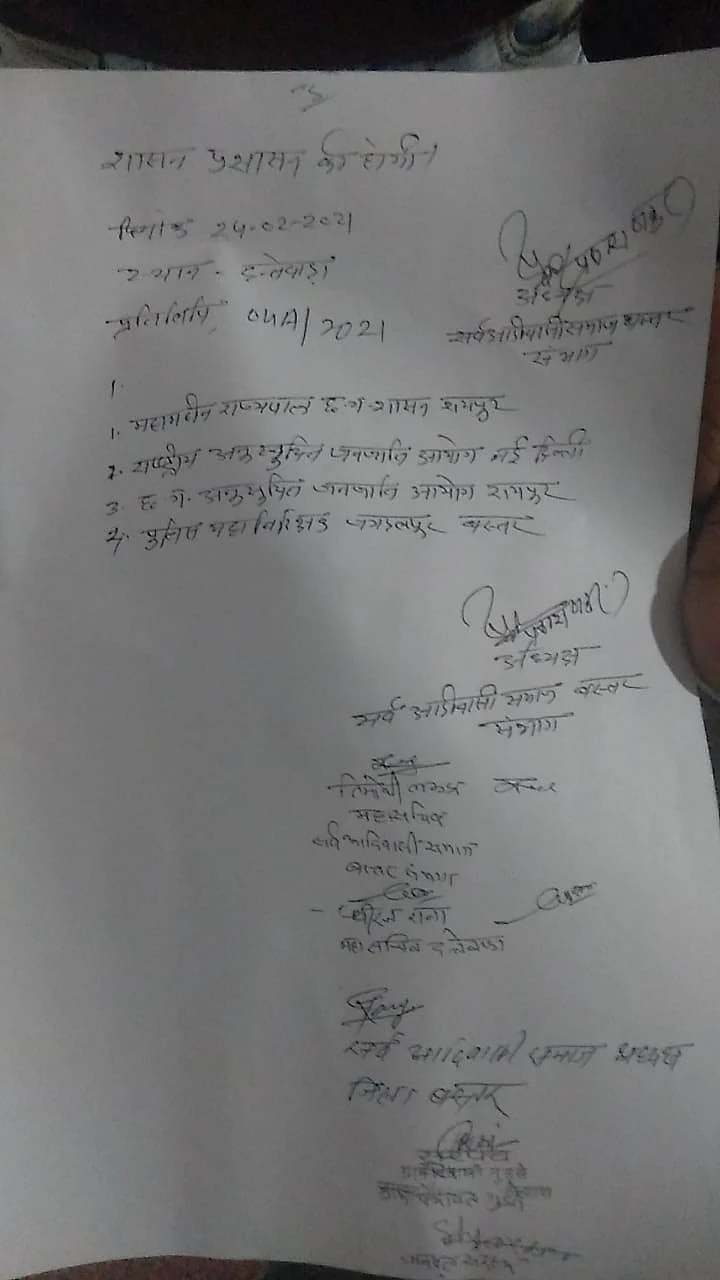 शासन प्रशासन की होगी।
दिनांक 24-02-2021
स्थान - दन्तेवाड़ा
अध्यक्ष
प्रतिलिपि, 04A/2021
सर्व आदीवासी समाज बस्तर
संभाग
1.
1. महामहीम राज्यपाल छ.ग. शासन रायपुर
2. राष्ट्रीय अनुसूचित जनजाति आयोग नई दिल्ली
3. छ.ग. अनुसूचित जनजाति आयोग रायपुर
4. पुलिस महानिरिक्षक जगदलपुर बस्तर
अध्यक्ष
सर्व आदीवासी समाज बस्तर
संभाग
महासचिव
सर्व आदिवासी समाज
बस्तर संभाग
धीरज राना
महासचिव दन्तेवाड़ा
सर्व आदिवासी समाज अध्यक्ष
जिला बस्तर